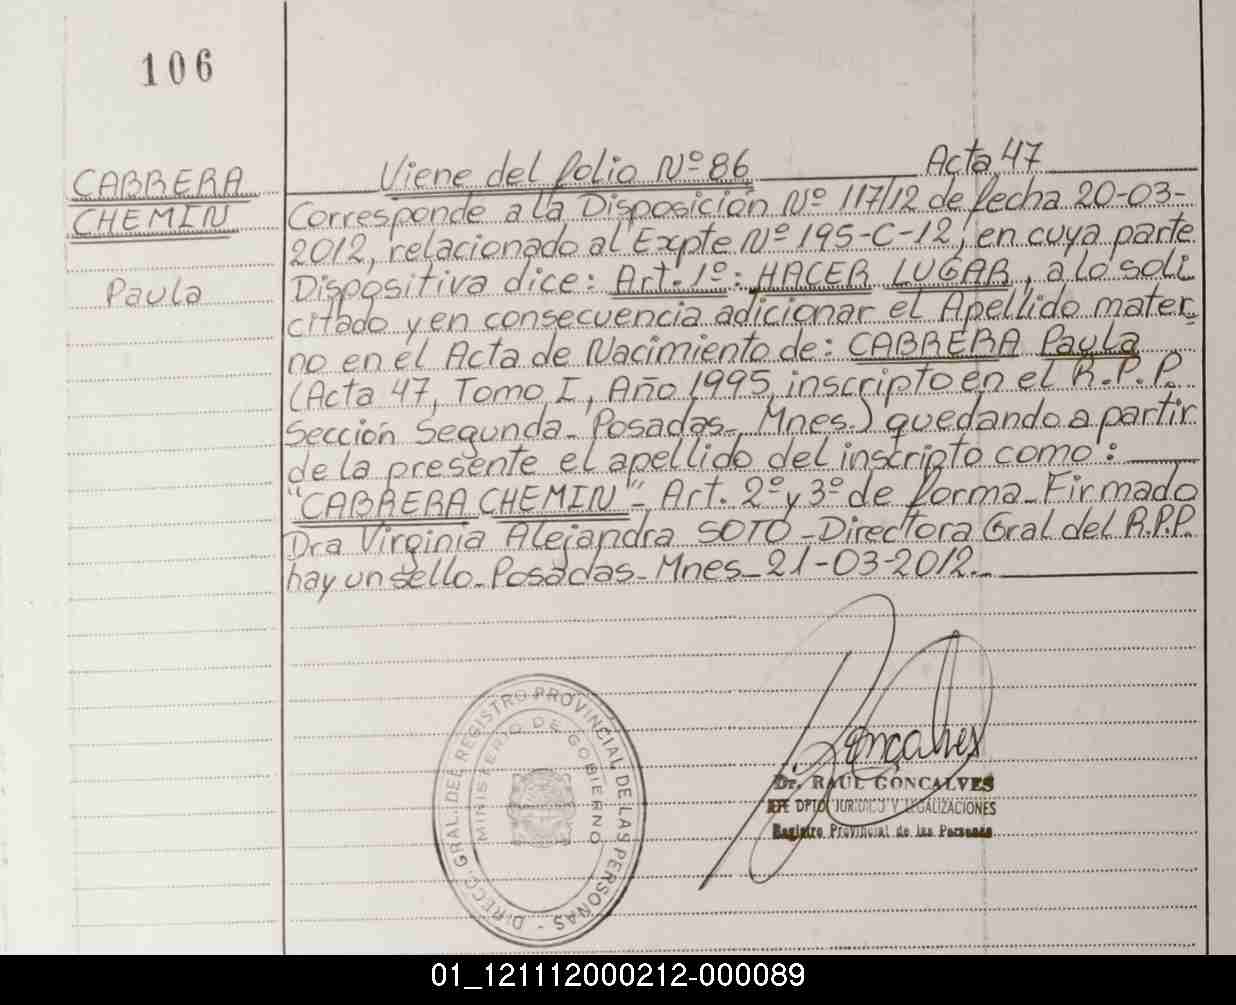 106
CABRERA
CHEMIN
Paula
Viene del folio Nº 86 Acta 47
Corresponde a la Disposición Nº 117/12 de fecha 20-03-
2012, relacionado al Expte Nº 195-C-12, en cuya parte
Dispositiva dice: Art. 1º: HACER LUGAR, a lo soli
citado y en consecuencia adicionar el Apellido mater_
no en el Acta de Nacimiento de: CABRERA Paula
(Acta 47, Tomo I, Año 1995, inscripto en el R.P.P.
Sección Segunda_ Posadas_ Mnes.) quedando a partir
de la presente el apellido del inscripto como:
"CABRERA CHEMIN"_ Art. 2º y 3º de forma_ Firmado
Dra Virginia Alejandra SOTO_Directora Gral del R.P.P.
hay un sello_Posadas_Mnes_21-03-2012_
DIRECC. GRAL. DEL REGISTRO PROVINCIAL DE LAS PERSONAS -
MINISTERIO DE GOBIERNO
Goncalves
Dr. RAUL GONCALVES
JEFE DPTO JURIDICO Y LEGALIZACIONES
Registro Provincial de las Personas
01_121112000212-000089